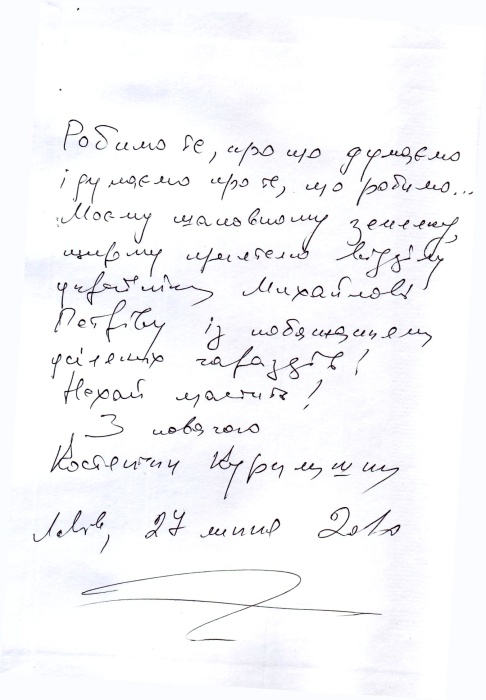 Робимо те, про що думаємо
і думаємо про те, що робимо...
Моєму шановному земляку,
щирому приятелю
Михайлові
Петріву із побажанням
усіляких гараздів!
Нехай щастить!
З повагою
Костянтин Курилишин
Львів, 27 липня 2010